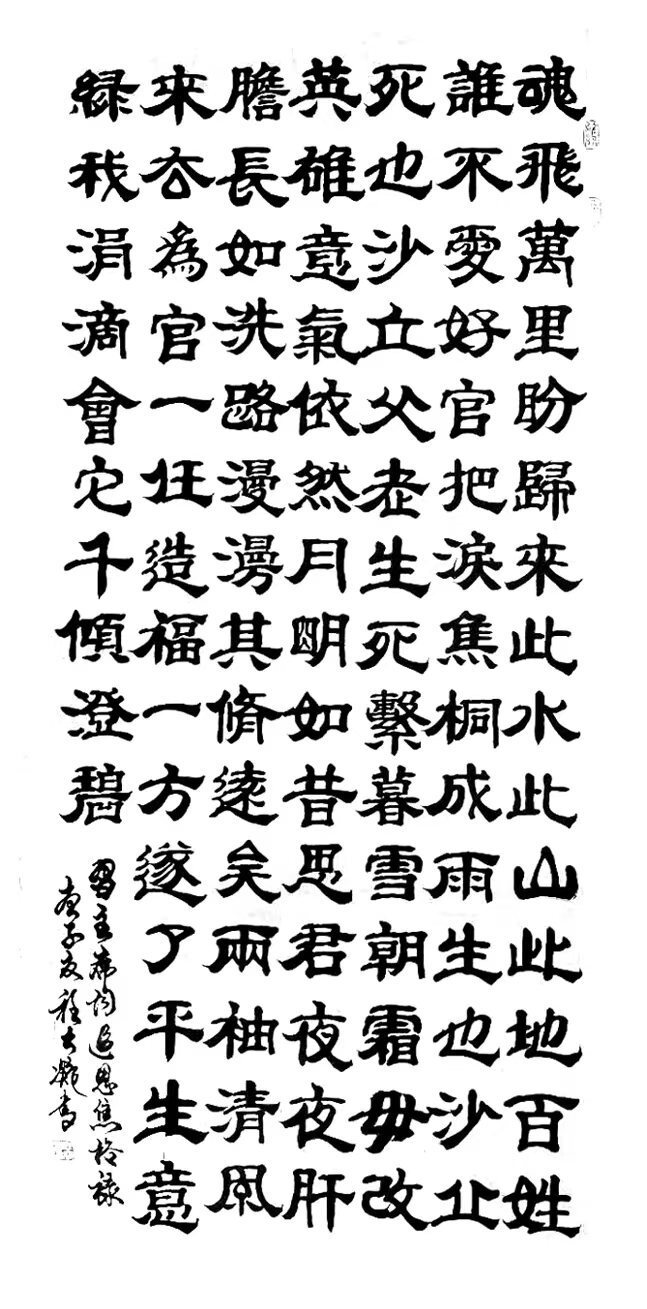 魂飛萬里盼歸來此水此山此地百姓
誰不愛好官把淚焦桐成雨生也沙丘
死也沙立父老生死繫暮雪朝霜毋改
英雄意氣依然月明如昔思君夜夜肝
膽長如洗路漫漫其脩遠矣兩袖清風
來去為官一任造福一方遂了平生意
綠我涓滴會它千傾澄碧
習主席詞追思焦裕祿
庚子夏程大凝書